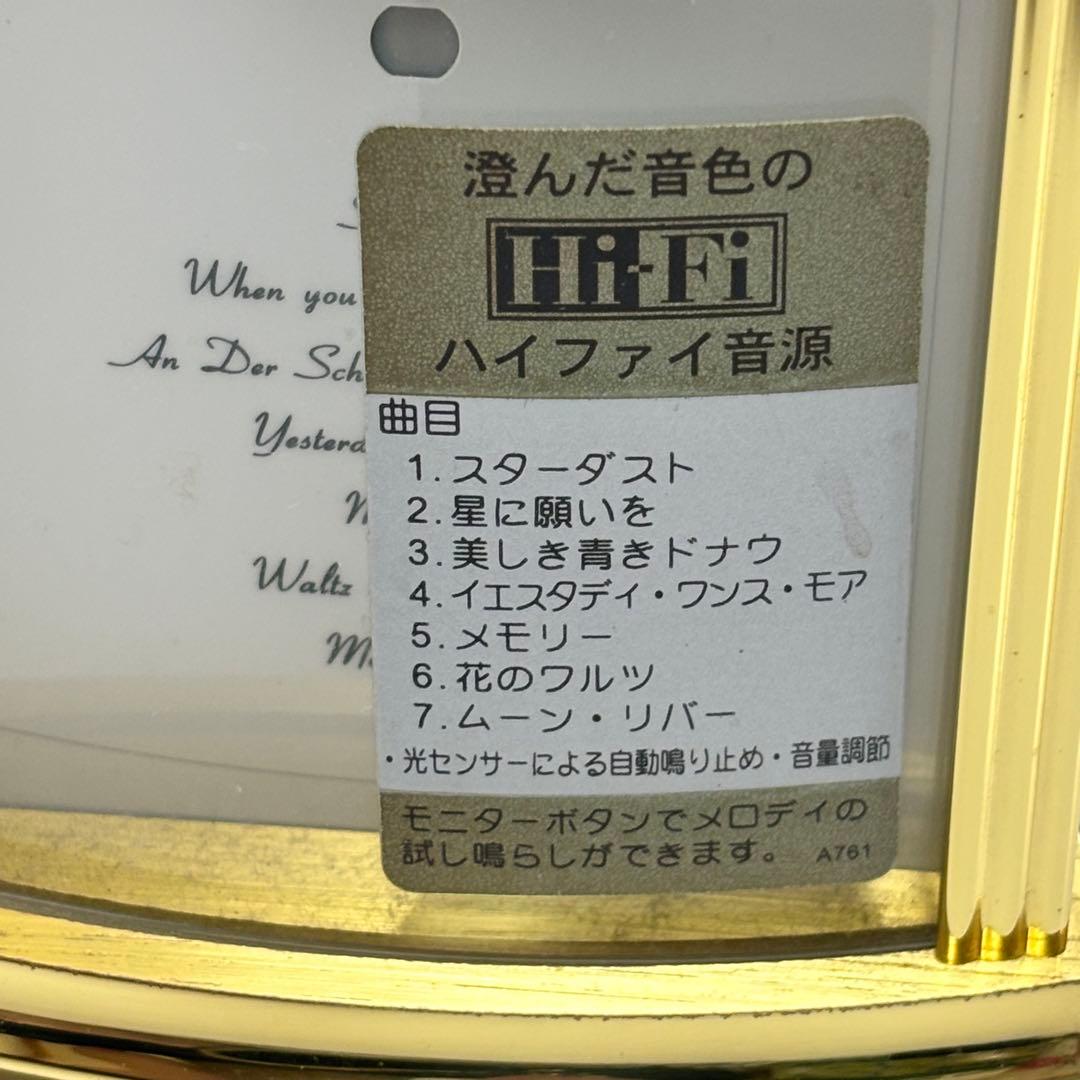 澄んだ音色の
Hi-Fi
ハイファイ音源
曲目
1.スターダスト
2.星に願いを
3.美しき青きドナウ
4.イエスタデイ・ワンス・モア
5.メモリー
6.花のワルツ
7.ムーン・リバー
・光センサーによる自動鳴り止め・音量調節
モニターボタンでメロディの
試し鳴らしができます。 A761
When you
An Der Sch
Yesterd
Waltz